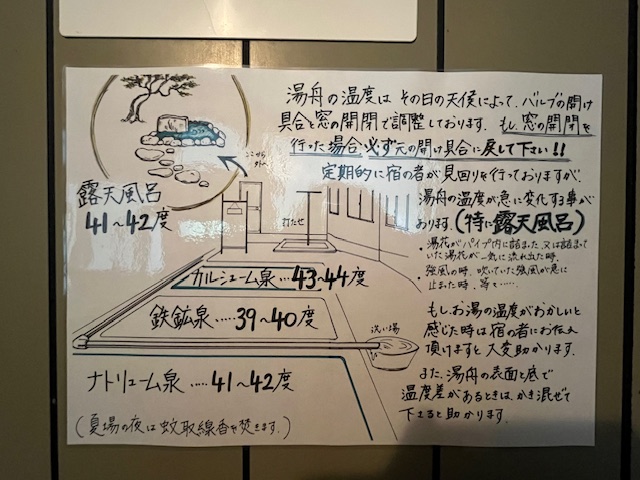 湯舟の温度は その日の天候によって、バルブの開け
具合と窓の開閉で調整しております。もし、窓の開閉を
行った場合、必ず元の開け具合に戻して下さい!!
定期的に宿の者が見回りを行っておりますが、
湯舟の温度が急に変化する事が
あります。(特に露天風呂)
・湯花がパイプ内に詰まった、又は詰まって
いた湯花が一気に流れ出た時、
・強風の時、吹いていた強風が急に
止まった時、等々……
もし、お湯の温度がおかしいと
感じた時は宿の者にお伝え
頂けますと大変助かります。
また、湯舟の表面と底で
温度差があるときは、かき混ぜて
下さると助かります。
ここから
外へ
露天風呂
41〜42度
打たせ
カルシューム泉…43〜44度
鉄鉱泉……39〜40度
洗い場
ナトリューム泉……41〜42度
(夏場の夜は蚊取線香を焚きます。)